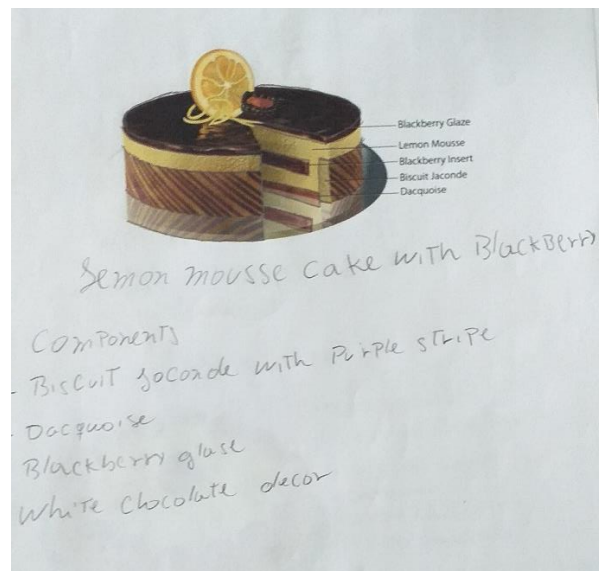 Blackberry Glaze
Lemon Mousse
Blackberry Insert
Biscuit Jaconde
Dacquoise
Lemon mousse cake with BlackBerry
Components
- Biscuit Joconde with Purple stripe
- Dacquoise
Blackberry glase
White chocolate decor